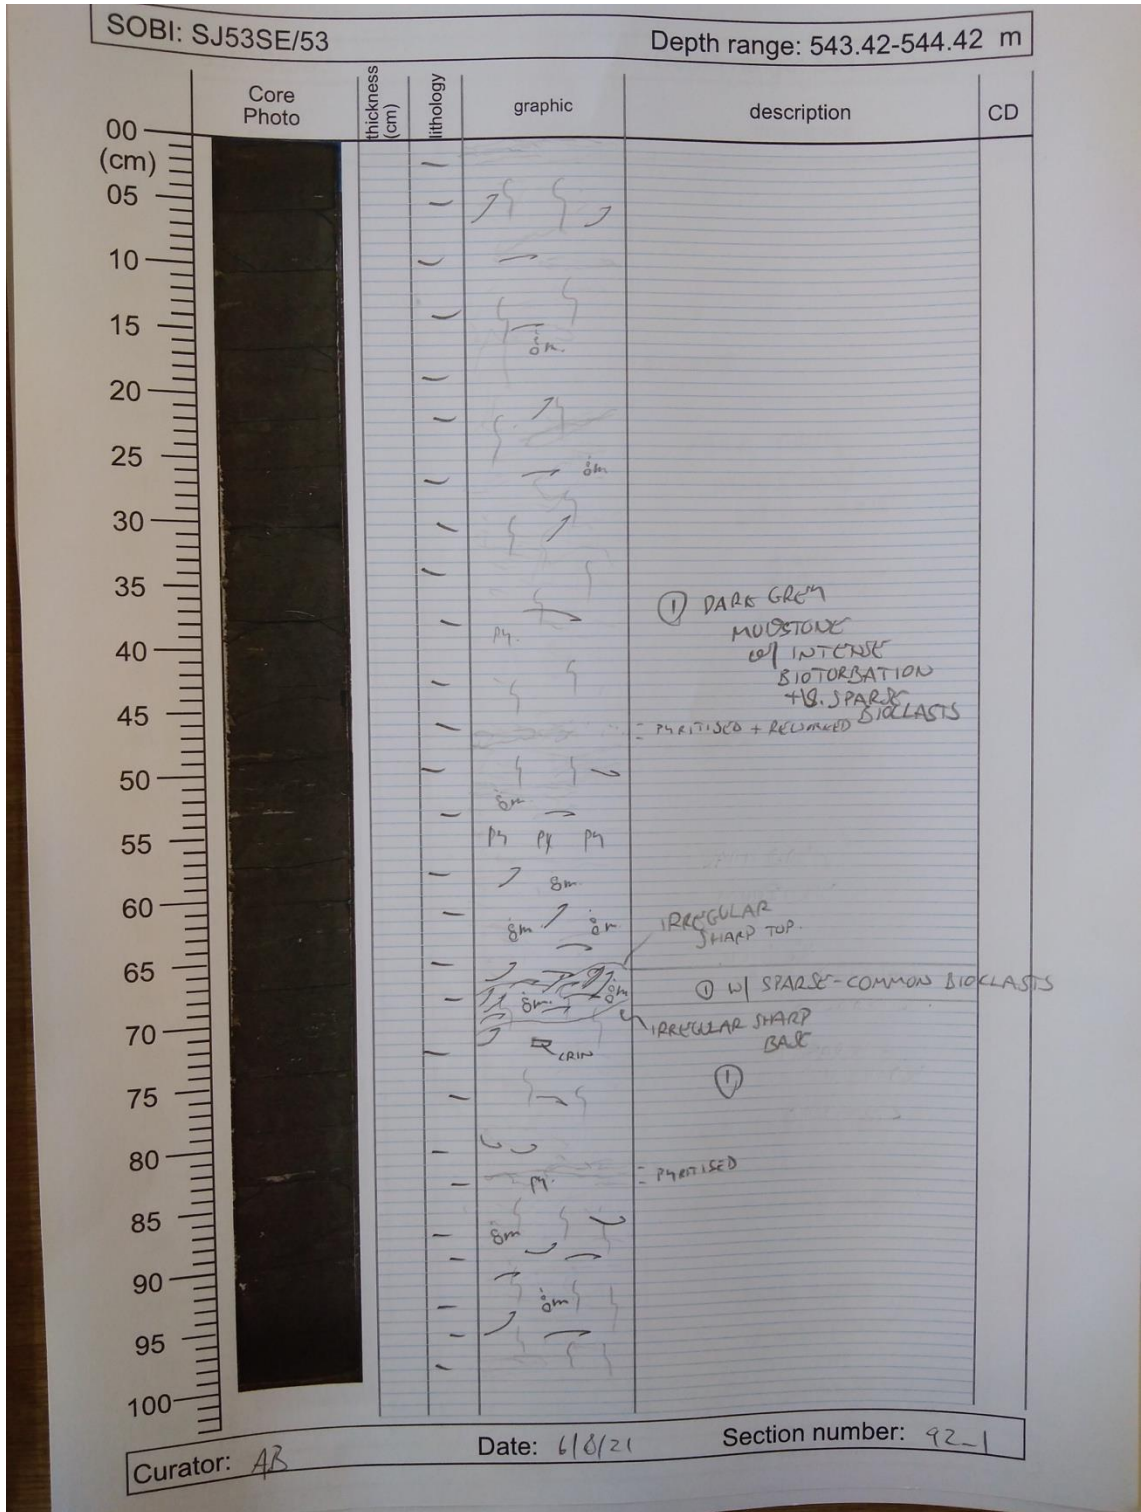 SOBI: SJ53SE/53
Depth range: 543.42-544.42 m
Core
Photo
thickness
(cm)
lithology
graphic
description
CD
00
(cm)
05
10
15
20
25
30
35
40
45
50
55
60
65
70
75
80
85
90
95
100
① DARK GREY
MUDSTONE
w/ INTENSE
BIOTURBATION
+ V. SPARSE
BIOCLASTS
py.
= PYRITISED + REWORKED
py py py
IRREGULAR
SHARP TOP.
① w/ SPARSE-COMMON BIOCLASTS
IRREGULAR SHARP
BASE
CRIN
①
py.
= PYRITISED
Curator: AB
Date: 6/8/21
Section number: 92_1